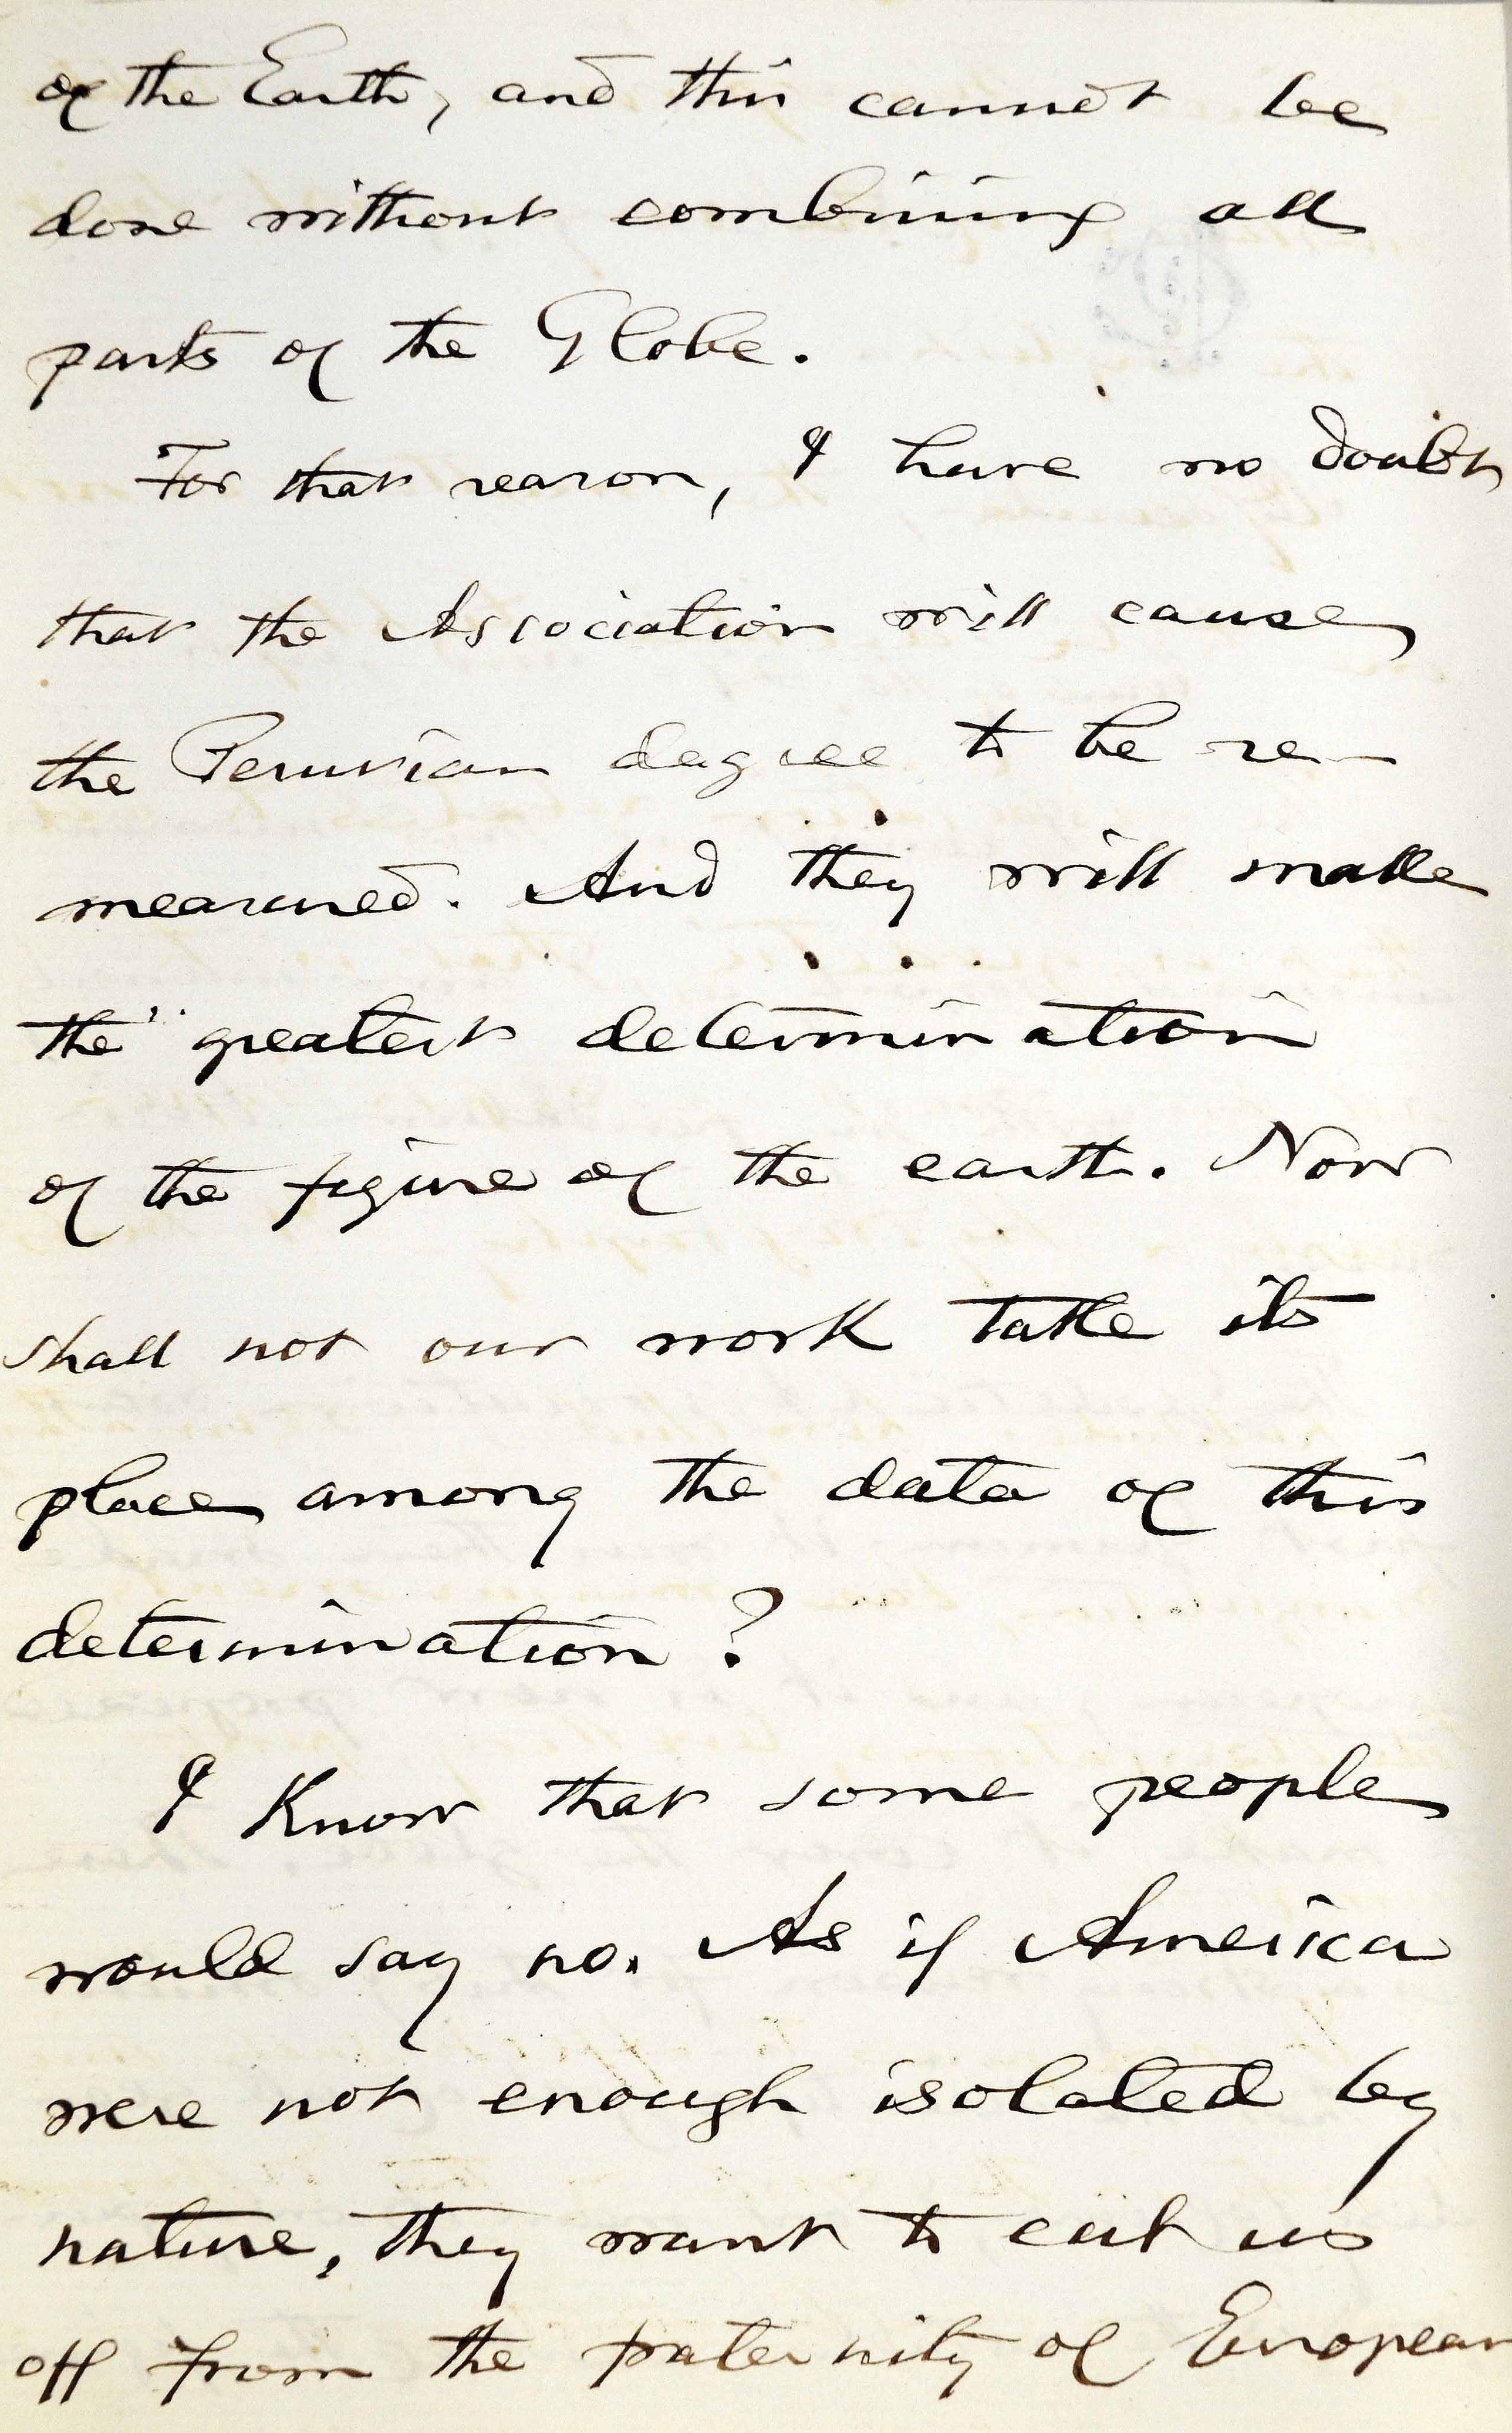 of the Earth, and this cannot be
done without combining all
parts of the Globe.
For that reason, I have no doubt
that the Association will cause
the Peruvian degree to be re-
measured. And they will make
the greatest determination
of the figure of the earth. Now
shall not our work take its
place among the data of this
determination?
I know that some people
would say no. As if America
were not enough isolated by
nature, they want to cut us
off from the fraternity of European